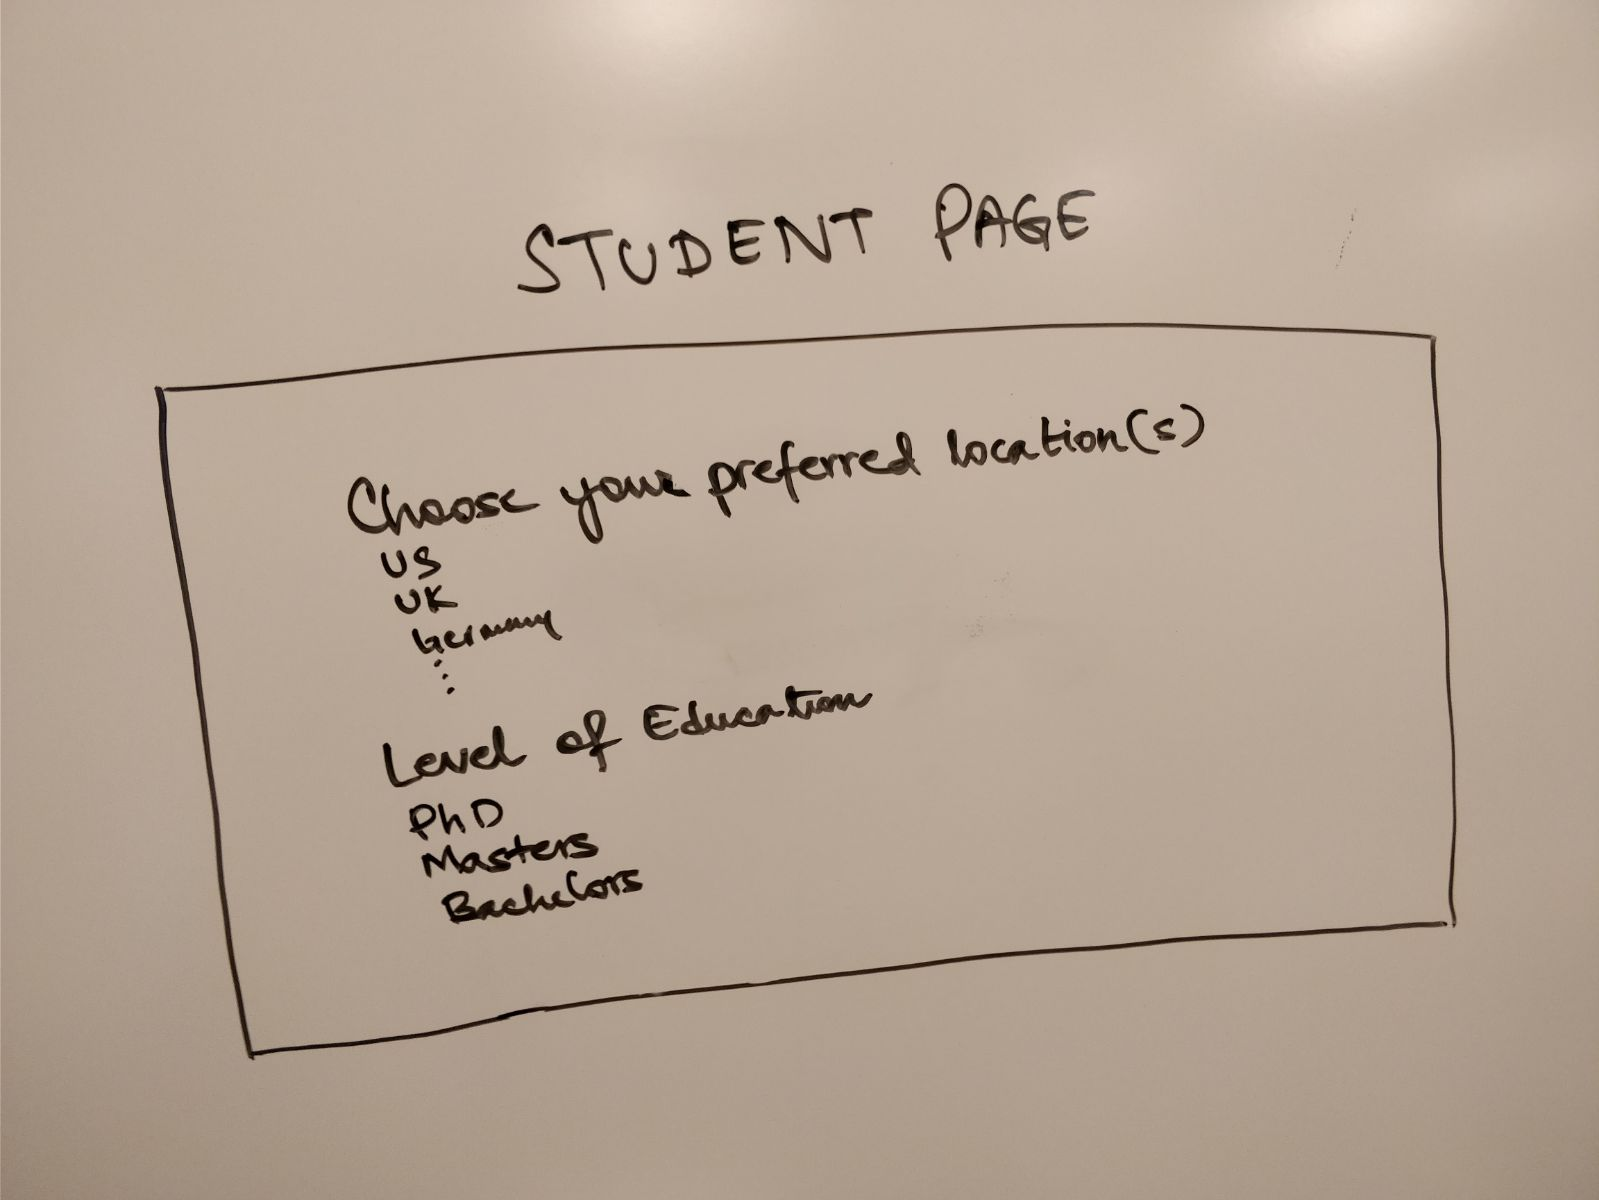 STUDENT PAGE
Choose your preferred location(s)
US
UK
Germany
⋮
Level of Education
PhD
Masters
Bachelors